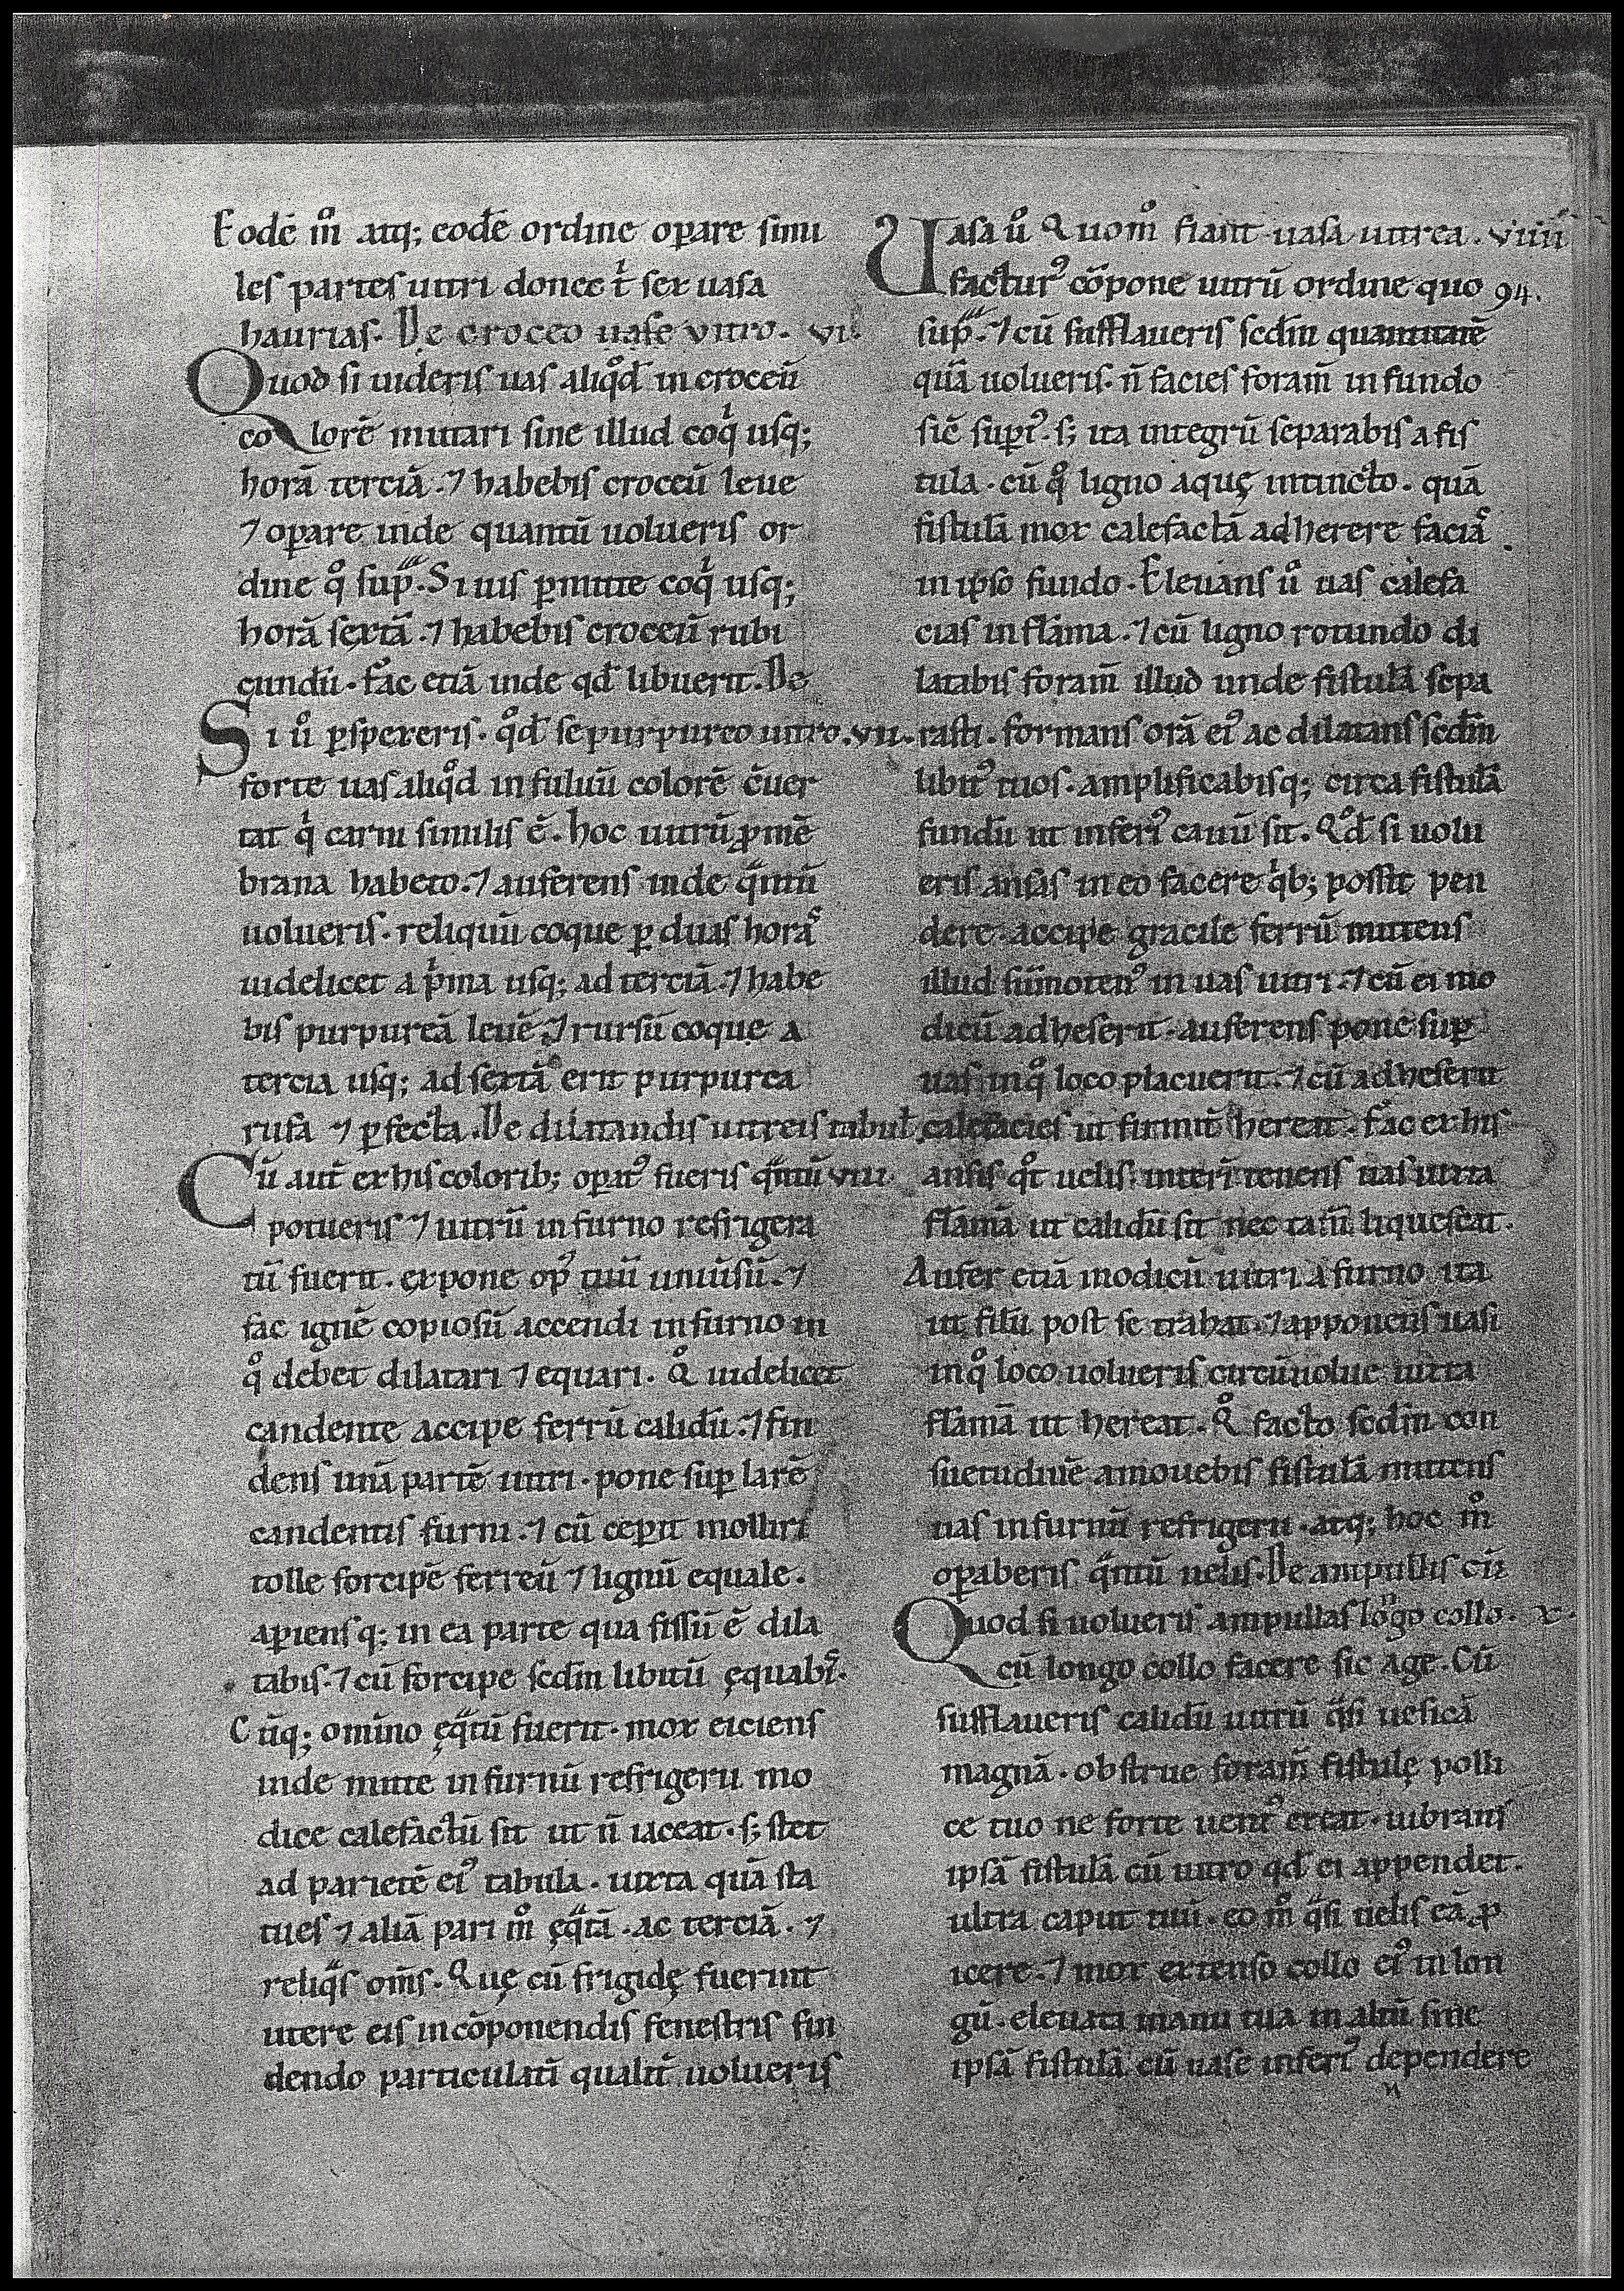 Eodē m̊ atq; eodē ordine oꝑare simi
les partes uitri donec t̓ sex uasa
haurias. De croceo uase vitro. vi.
Quod si uideris uas aliq̊d in croceū
colorē mutari sine illud coq̓ usq;
horā terciā. ⁊ habebis croceū leue
⁊ oꝑare inde quantū uolueris or
dine q̊ sup̃. Si uis ꝑmitte coq̓ usq;
horā sextā. ⁊ habebis croceū rubi
cundū. fac etiā inde qd̄ libuerit. De
Si ů ꝑspexeris. q̊d se purpureo uitro. vii.
forte uas aliq̊d in fuluū colorē c̄uer
tat q̓ carni similis ē. hoc uitrū ꝓ mē
brana habeto. ⁊ auferens inde qͣntū
uolueris. reliquū coque ꝑ duas horas
uidelicet a p̓ma usq; ad terciā. ⁊ habe
bis purpureā leuē. ⁊ rursū coque a
tercia usq; ad sextā erit purpurea
rufa ⁊ ꝑfecta. De dilatandis uitreis tabul̄.
Cū aut̄ ex his colorib; oꝑatꝰ fueris qͣntū viii
potueris ⁊ uitrū in furno refrigera
tū fuerit. expone opꝰ tuū uniūsū. ⁊
fac ignē copiosū accendi in furno in
q̊ debet dilatari ⁊ equari. Q̊ uidelicet
candente accipe ferrū calidū. ⁊ fin
dens unā partē uitri. pone suꝑ larē
candentis furni. ⁊ cū ceꝑit molliri
tolle forcipē ferreū ⁊ lignū equale.
aꝑiensq; in ea parte qua fissū ē dila
tabis. ⁊ cū forcipe scd̄m libitū ęquabis.
Cūq; omino ęqͣtū fuerit. mox eiciens
inde mitte in furnū refrigerii mo
dice calefactū sit ut n̄ iaceat. s; stet
ad parietē eiꝰ tabula. iuxta quā sta
tues ⁊ aliā pari m̊ ęqͣtā. ac terciā. ⁊
reliqͣs om̄s. Quę cū frigidę fuerint
utere eis in cōponendis fenestris fin
dendo particulatī qualit̄ uolueris
Uasa ů Quom̊ fiant uasa uitrea. viiii
facturꝰ cōpone uitrū ordine quo 94.
sup̃. ⁊ cū sufflaueris scd̄m quantitatē
quā uolueris. n̄ facies foram̄ in fundo
sic̄ suꝑꝰ. s; ita integrū separabis a fis
tula. cū q̊ ligno aquę intincto. quā
fistulā mox calefactā adherere facias
in ipso fundo. Eleuans ů uas calefa
cias in flāma. ⁊ cū ligno rotundo di
latabis foram̄ illud unde fistulā sepa
rasti. formans orā eiꝰ ac dilatans scd̄m
libitꝰ tuos. amplificabisq; circa fistulā
fundū ut inferiꝰ cauū sit. Q̊d si uolu
eris ansas in eo facere q̓b; possit pen
dere. accipe gracile ferrū mittens
illud sūmotenꝰ in uas uitri. ⁊ cū ei mo
dicū adheserit. auferens pone suꝑ
uas in q̊ loco placuerit. ⁊ cū adheserit
calefacies ut firmit̄ hereat. fac ex his
ansis q̊t uelis. interī tenens uas iuxta
flāmā ut calidū sit nec tam̄ liquescat.
Aufer etiā modicū uitri a furno ita
ut filū post se trahat. ⁊ apponens uasi
in q̊ loco uolueris circūuolue iuxta
flāmā ut hereat. Q̊ facto scd̄m con
suetudinē amouebis fistulā mittens
uas in furnū refrigerii. atq; hoc m̊
oꝑaberis qͣntū uelis. De ampullis cū
Quod si uolueris ampullas lōgo collo. x.
cū longo collo facere sic age. Cū
sufflaueris calidū uitrū qͣsi uesicā
magnā. obstrue foram̄ fistulę polli
ce tuo ne forte uentꝰ exeat. uibrans
ipsā fistulā cū uitro qd̄ ei appendet.
ultra caput tuū. eo m̊ qͣsi uelis eā ꝓ
icere. ⁊ mox extenso collo eiꝰ in lon
gū. eleuata manu tua in altū sine
ipsā fistulā cū uase inferiꝰ dependere